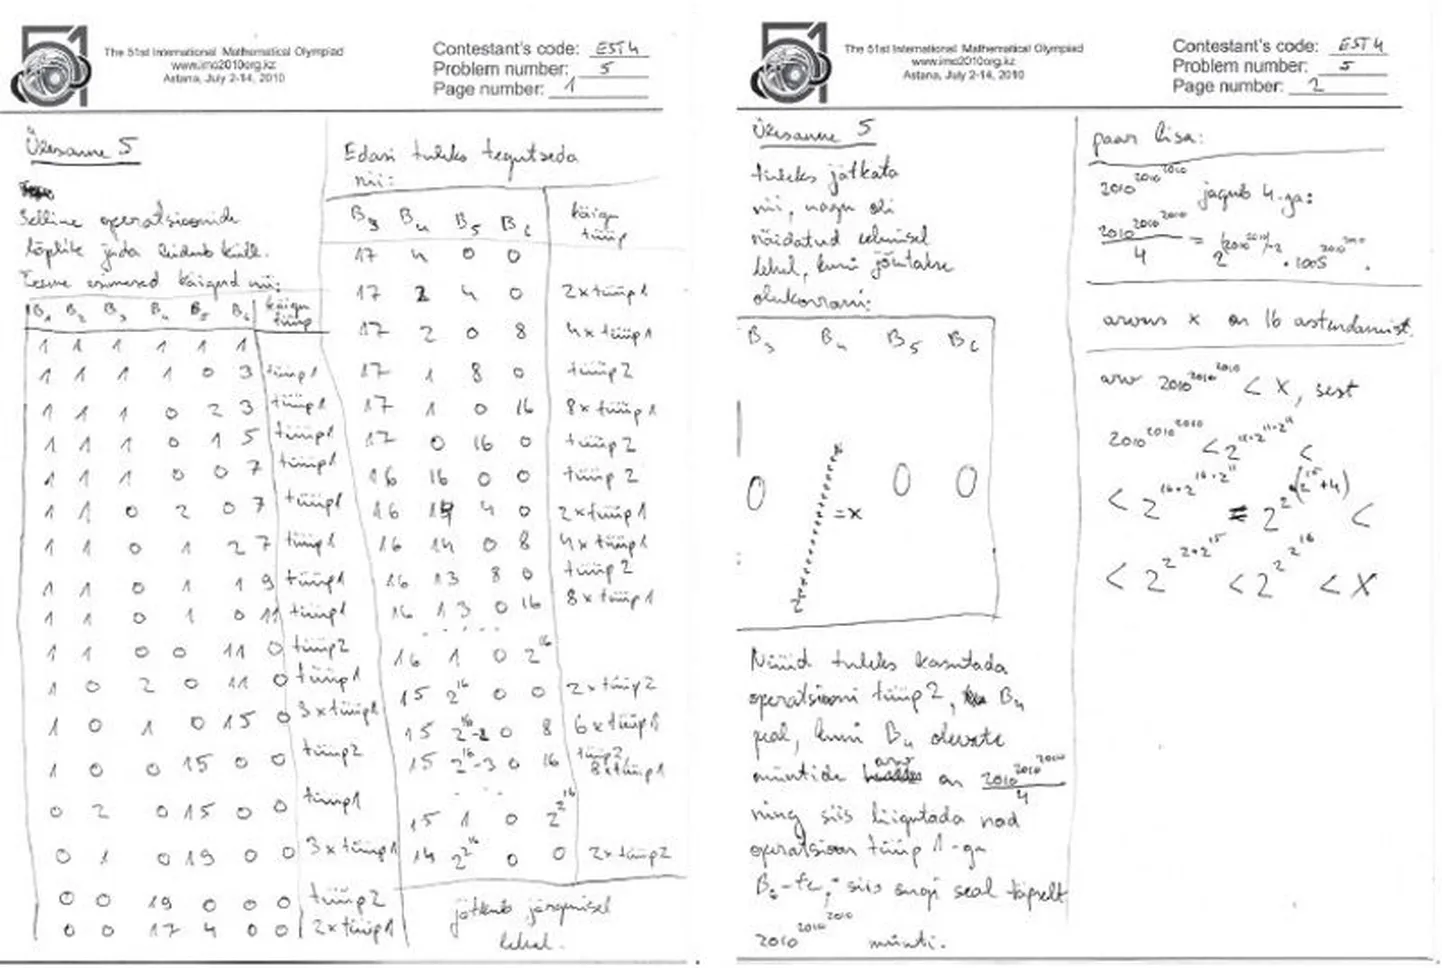 51
The 51st International Mathematical Olympiad
www.imo2010org.kz
Astana, July 2-14, 2010
Contestant's code: EST4
Problem number: 5
Page number: 1
Ülesanne 5
Selline operatsioonide
lõplik jada leidub küll.
Teeme esimesed käigud nii:
B₁ B₂ B₃ B₄ B₅ B₆ käigu tüüp
1 1 1 1 1 1
1 1 1 1 0 3 tüüp1
1 1 1 0 2 3 tüüp1
1 1 1 0 1 5 tüüp1
1 1 1 0 0 7 tüüp1
1 1 0 2 0 7 tüüp1
1 1 0 1 2 7 tüüp1
1 1 0 1 1 9 tüüp1
1 1 0 1 0 11 tüüp1
1 1 0 0 11 0 tüüp2
1 0 2 0 11 0 tüüp1
1 0 1 0 15 0 3xtüüp1
1 0 0 15 0 0 tüüp2
0 2 0 15 0 0 tüüp1
0 1 0 19 0 0 3xtüüp1
0 0 19 0 0 0 tüüp2
0 0 17 4 0 0 2xtüüp1
Edasi tuleks tegutseda
nii:
B₃ B₄ B₅ B₆ käigu tüüp
17 4 0 0
17 2 4 0 2xtüüp1
17 2 0 8 4xtüüp1
17 1 8 0 tüüp2
17 1 0 16 8xtüüp1
17 0 16 0 tüüp2
16 16 0 0 tüüp2
16 14 4 0 2xtüüp1
16 14 0 8 4xtüüp1
16 13 8 0 tüüp2
16 13 0 16 8xtüüp1
. . . .
16 1 0 2^16
15 2^16 0 0 2xtüüp2
15 2^16-2 0 8 6xtüüp1
15 2^16-3 0 16 tüüp2, 8xtüüp1
. . .
15 1 0 2^2^16
14 2^2^16 0 0 2xtüüp2
jätkub järgmisel
lehel.
51
The 51st International Mathematical Olympiad
www.imo2010org.kz
Astana, July 2-14, 2010
Contestant's code: EST4
Problem number: 5
Page number: 2
Ülesanne 5
tuleks jätkata
nii, nagu oli
näidatud eelmisel
lehel, kuni jõutakse
olukorrani:
B₃ B₄ B₅ B₆
0 2 = x 0 0
Nüüd tuleks kasutada
operatsiooni tüüp 2, B₄
peal, kuni B₄ olevate
müntide arv on 2010^2010^2010/4
ning siis liigutada nad
operatsioon tüüp 1-ga
B₆-te, siis ongi seal täpselt
2010^2010^2010 münti.
paar lisa:
2010^2010^2010 jagub 4-ga:
2010^2010^2010/4 = 2^(2010^2010)-2 · 1005^2010^2010.
arvus x on 16 astendamist.
arv 2010^2010^2010 < x, sest
2010^2010^2010 < 2^11·2^11·2^11 <
< 2^16·2^16·2^11 = 2^2^(2^15+4) <
< 2^2^2·2^15 < 2^2^2^16 < x